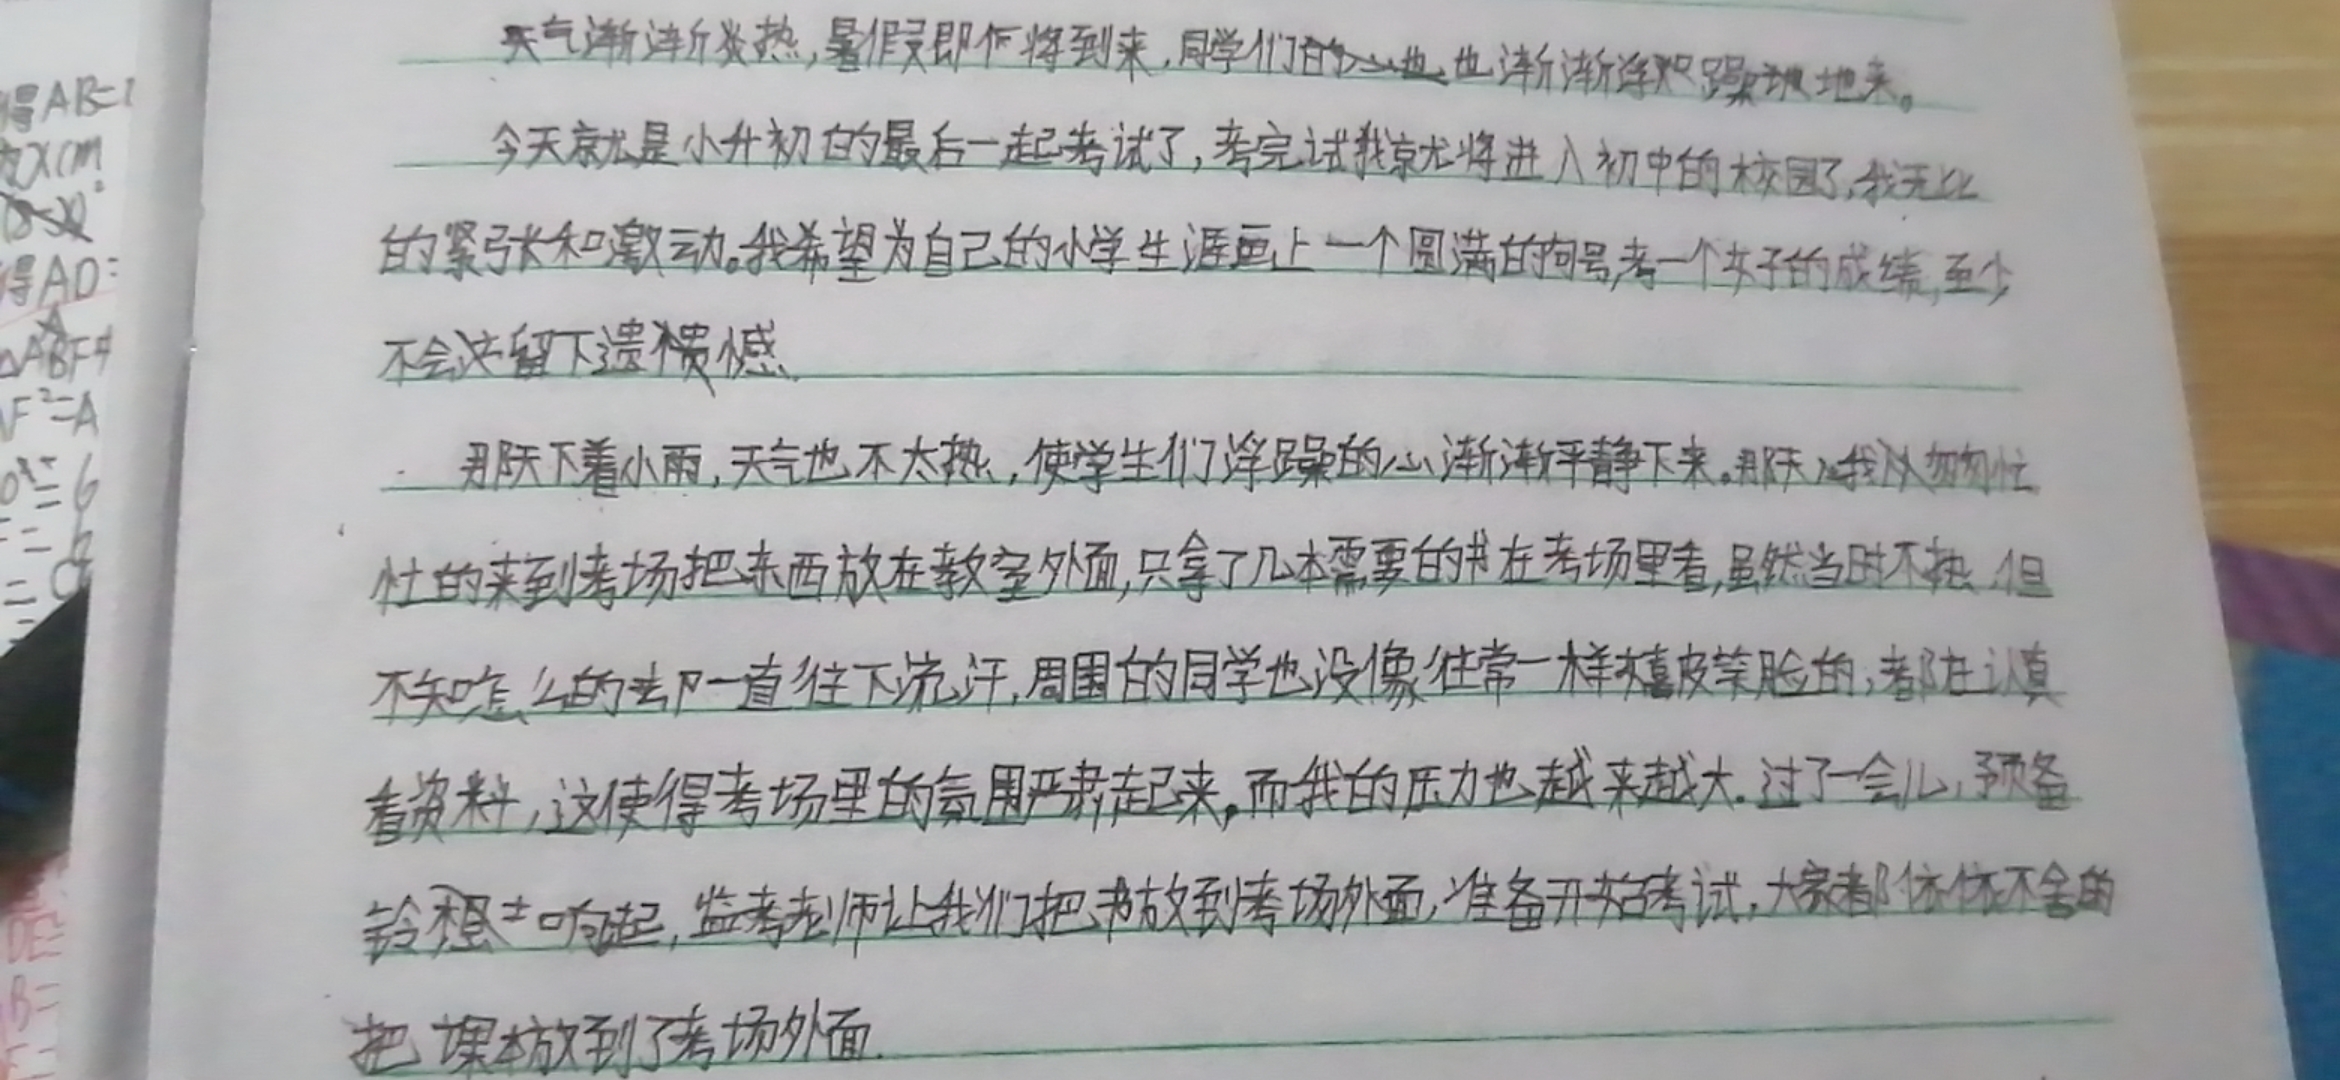 得AB=1
xcm
得AD=
△ABF
F²=A
=6
DE=
B=
天气渐渐炎热,暑假即将到来,同学们也渐渐浮躁地来。
今天就是小升初的最后一起考试了,考完试我就将进入初中的校园了,我无比
的紧张和激动。我希望为自己的小学生涯画上一个圆满的句号,考一个好的成绩,至少
不会留下遗憾、
那天下着小雨,天气也不太热,使学生们浮躁的心渐渐平静下来。那天,我匆匆忙
忙的来到考场把东西放在教室外面,只拿了几本需要的书在考场里看,虽然当时不热,但
不知咋么的却一直往下流汗,周围的同学也没像往常一样嬉皮笑脸的,都在认真
看资料,这使得考场里的氛围严肃起来。而我的压力也越来越大.过了一会儿,预备
铃声响起,监考老师让我们把书放到考场外面,准备开始考试,大家都依依不舍的
把课本放到了考场外面.